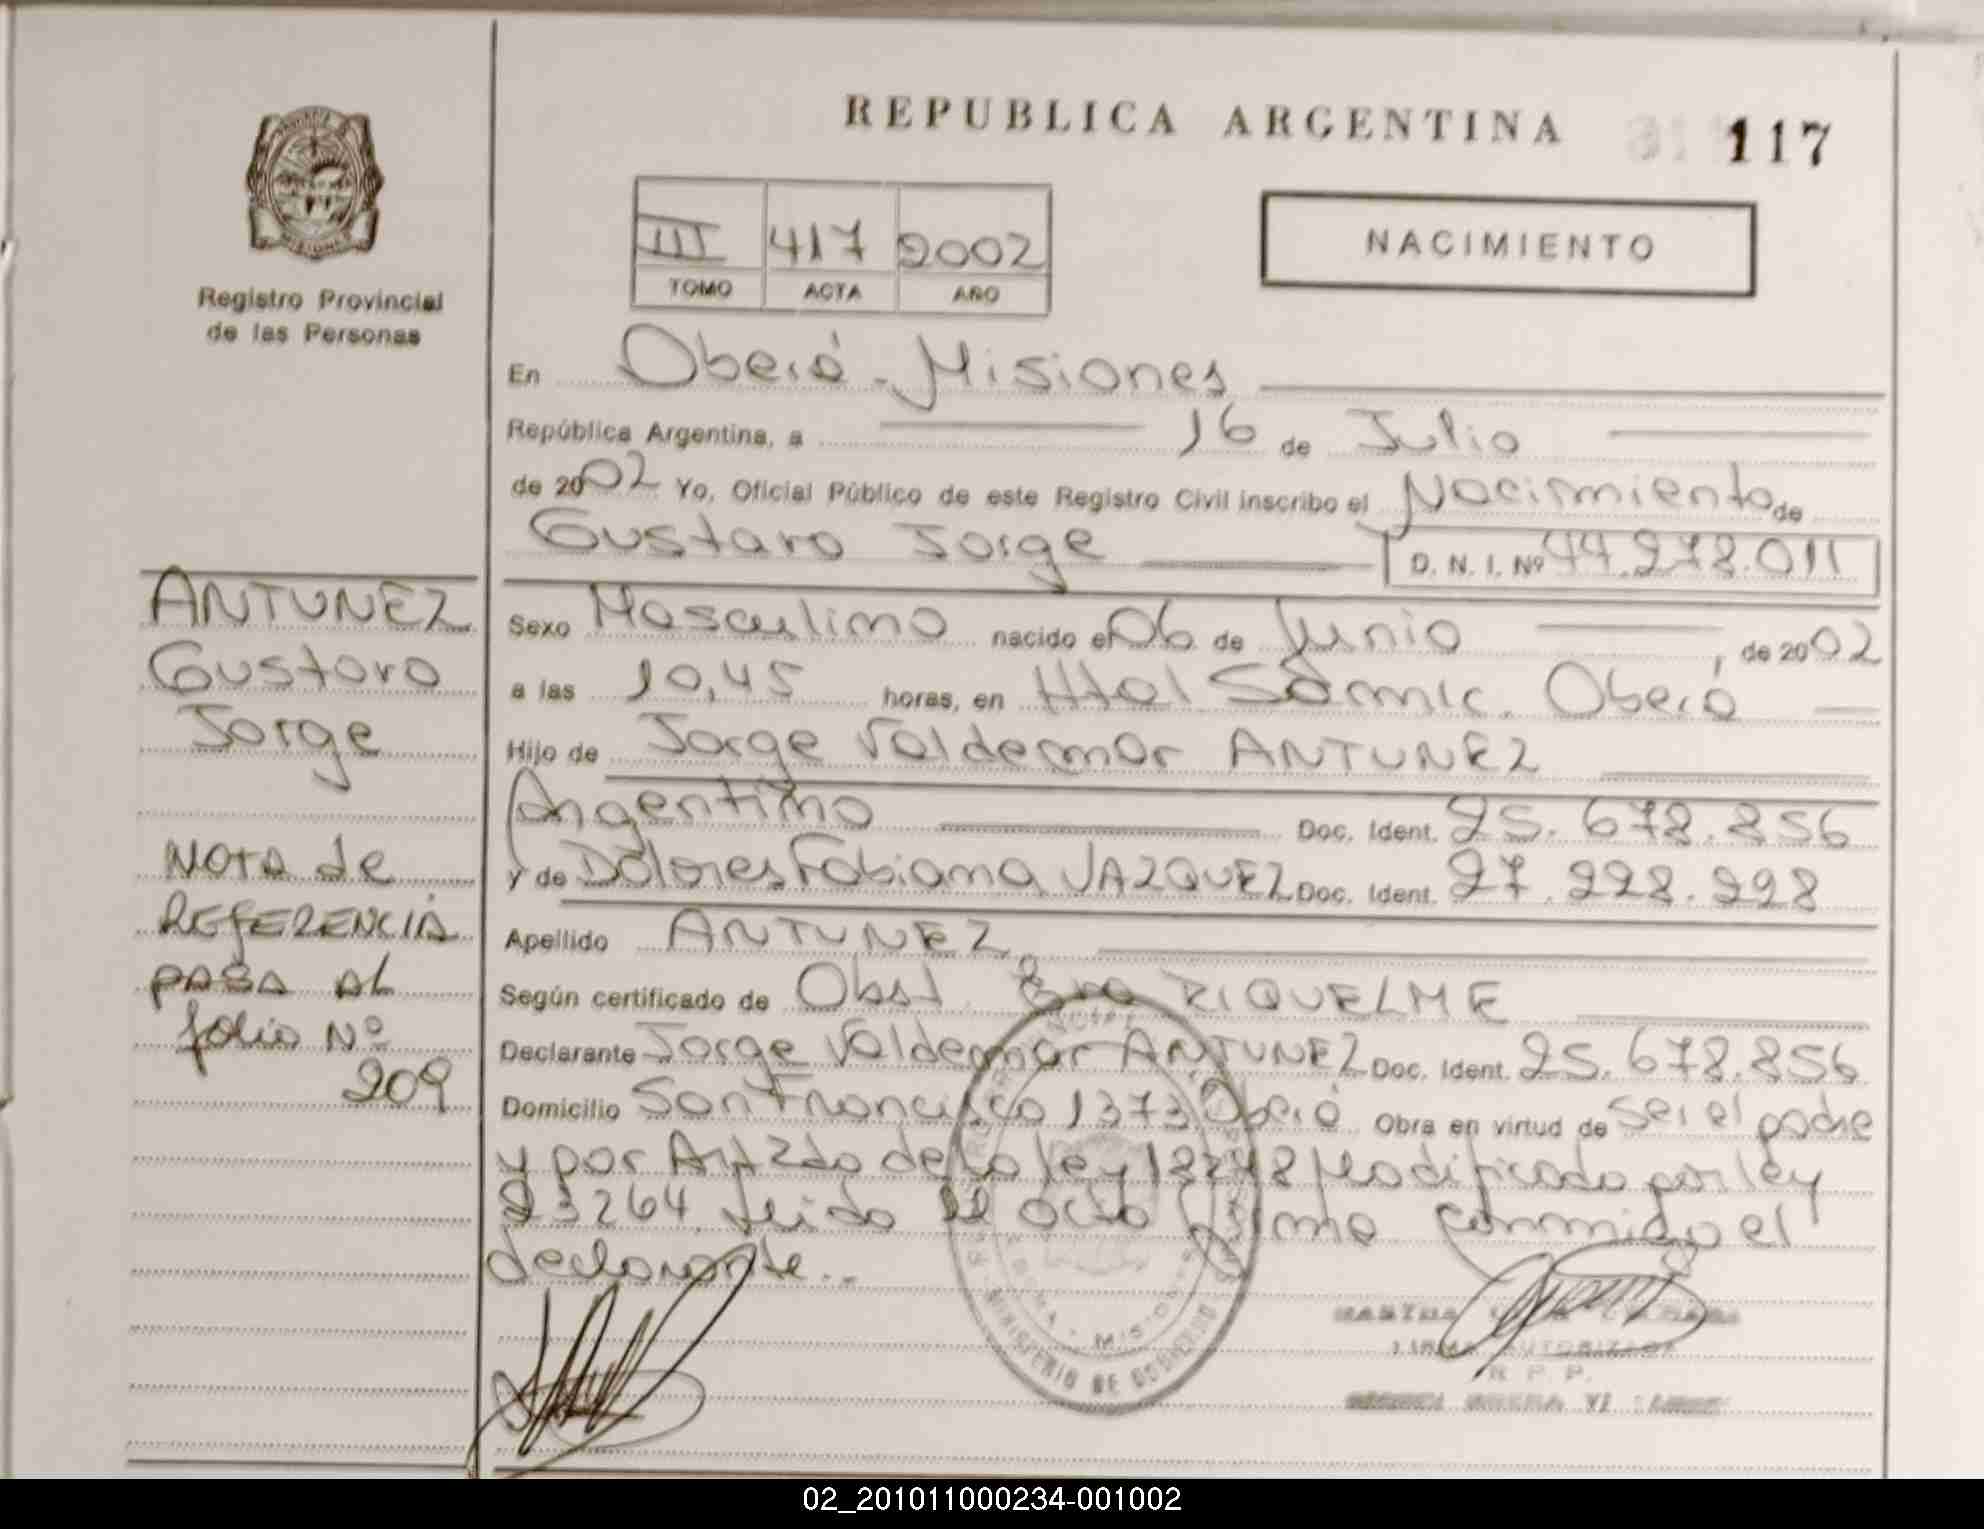 REPUBLICA ARGENTINA
117
III 417 2002
TOMO ACTA AÑO
NACIMIENTO
Registro Provincial
de las Personas
En Oberá - Misiones
República Argentina, a 16 de Julio
de 2002 Yo, Oficial Público de este Registro Civil inscribo el Nacimiento de
Gustavo Jorge D. N. I. Nº 44.278.011
ANTUNEZ
Gustavo
Jorge
Sexo Masculino nacido el 06 de Junio, de 2002
a las 10,45 horas, en Htal Sámic. Oberá
Hijo de Jorge Valdemar ANTUNEZ
Argentino Doc. Ident. 25.678.856
y de Dolores Fabiana VAZQUEZ Doc. Ident. 27.228.228
Apellido ANTUNEZ
Según certificado de Obst RIQUELME
Declarante Jorge Valdemar ANTUNEZ Doc. Ident. 25.678.856
Domicilio San Francisco 1373 Oberá Obra en virtud de ser el padre
y por Art 2do de la ley 18248 Modificado por ley
23264. Leido el acta firma conmigo el
declarante..
NOTA de
REFERENCIA
PASA AL
folio Nº
209
MINISTERIO DE GOBIERNO
MISIONES
FIRMA AUTORIZADA
R. P. P.
02_201011000234-001002